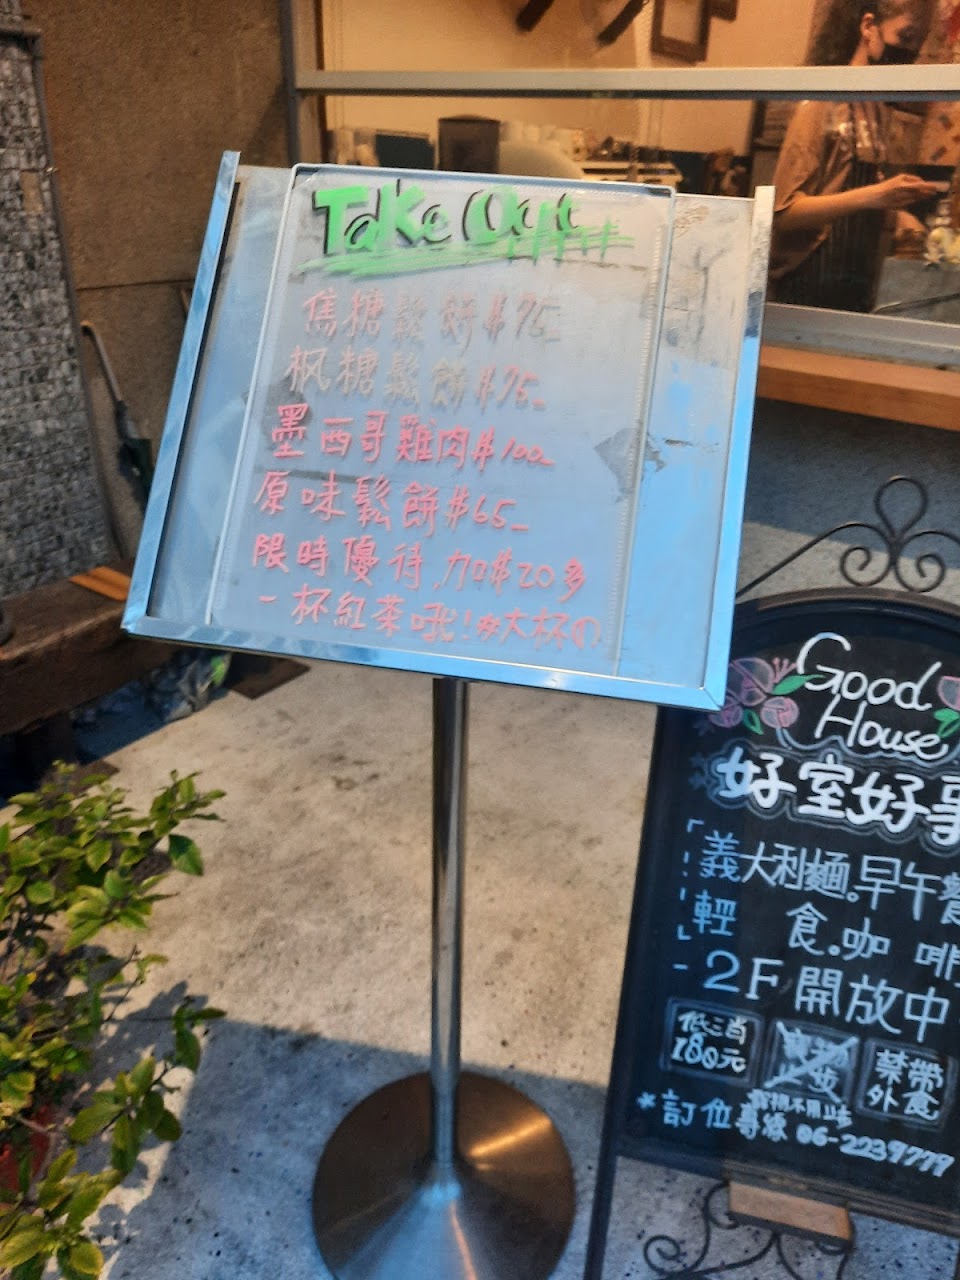 Take Out
焦糖鬆餅$75-
楓糖鬆餅$75-
墨西哥雞肉$100-
原味鬆餅$65-
限時優待,加$20多
一杯紅茶哦!#大杯的
Good
House
好室好事
「義大利麵。早午餐
輕食。咖啡
」-2F開放中
低消
180元
止步
禁帶
外食
*訂位專線 06-2239779